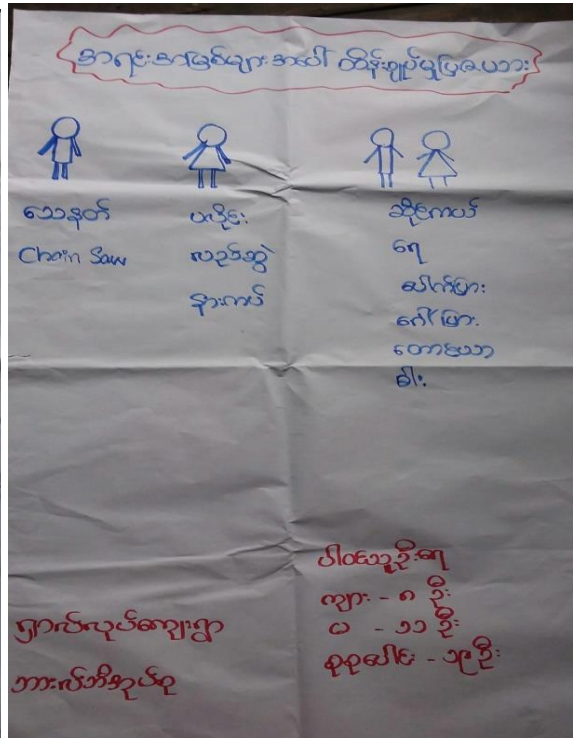 အရင်းအမြစ်များအပေါ် ထိန်းချုပ်မှုပြဇယား
သေနတ်
Chain Saw
ပလိုင်း
လည်ဆွဲ
နားကပ်
ဆိုင်ကယ်
ရေ
ပေါက်ပြား
ဂေါ်ပြား
တောင်ယာ
ဓါး
ပါဝင်သူဦးရေ
ကျား - ၈ ဦး
မ - ၁၁ ဦး
စုစုပေါင်း - ၁၉ ဦး
ရှာလ်လုပ်ကျေးရွာ
ဘားလ်ဘီအုပ်စု